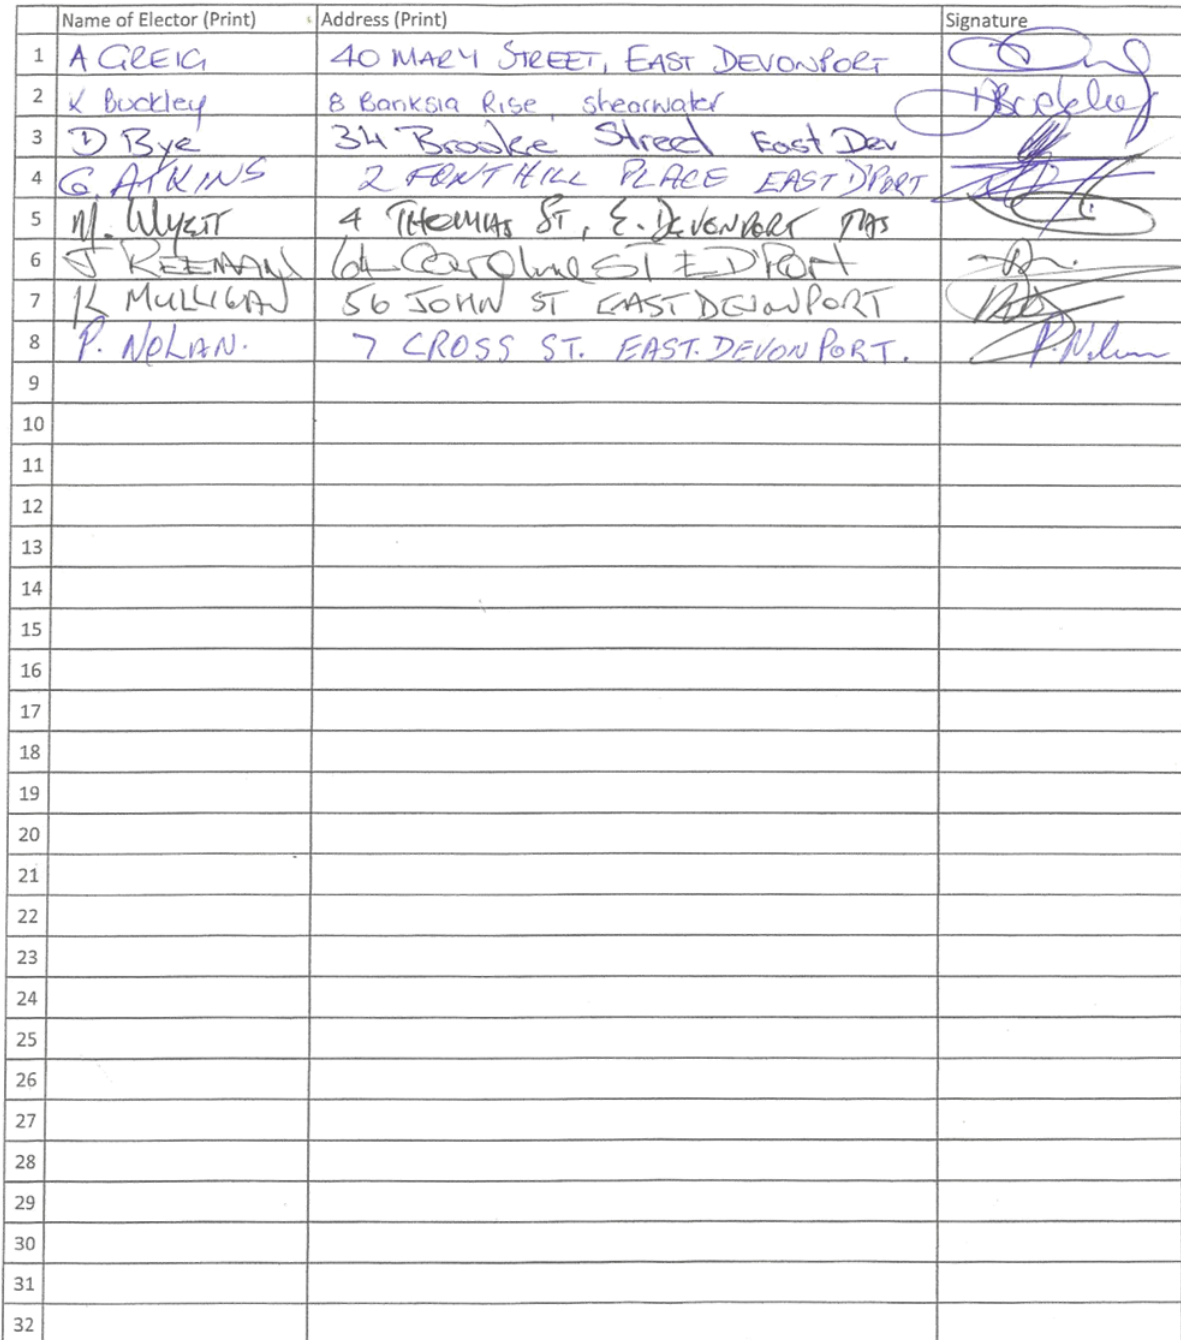 Name of Elector (Print) Address (Print) Signature
1 A GREIG 40 MARY STREET, EAST DEVONPORT
2 K Buckley 8 Banksia Rise, shearwater
3 D Bye 34 Brooke Street East Dev
4 G. ATKINS 2 FONTHILL PLACE EAST D'PORT
5 M. Wyett 4 THOMAS ST, E. DEVONPORT TAS
6 J KEENAN 64 Caroline ST E D Port
7 K MULLIGAN 56 JOHN ST EAST DEVONPORT
8 P. NOLAN. 7 CROSS ST. EAST. DEVONPORT. P. Nolan
9
10
11
12
13
14
15
16
17
18
19
20
21
22
23
24
25
26
27
28
29
30
31
32